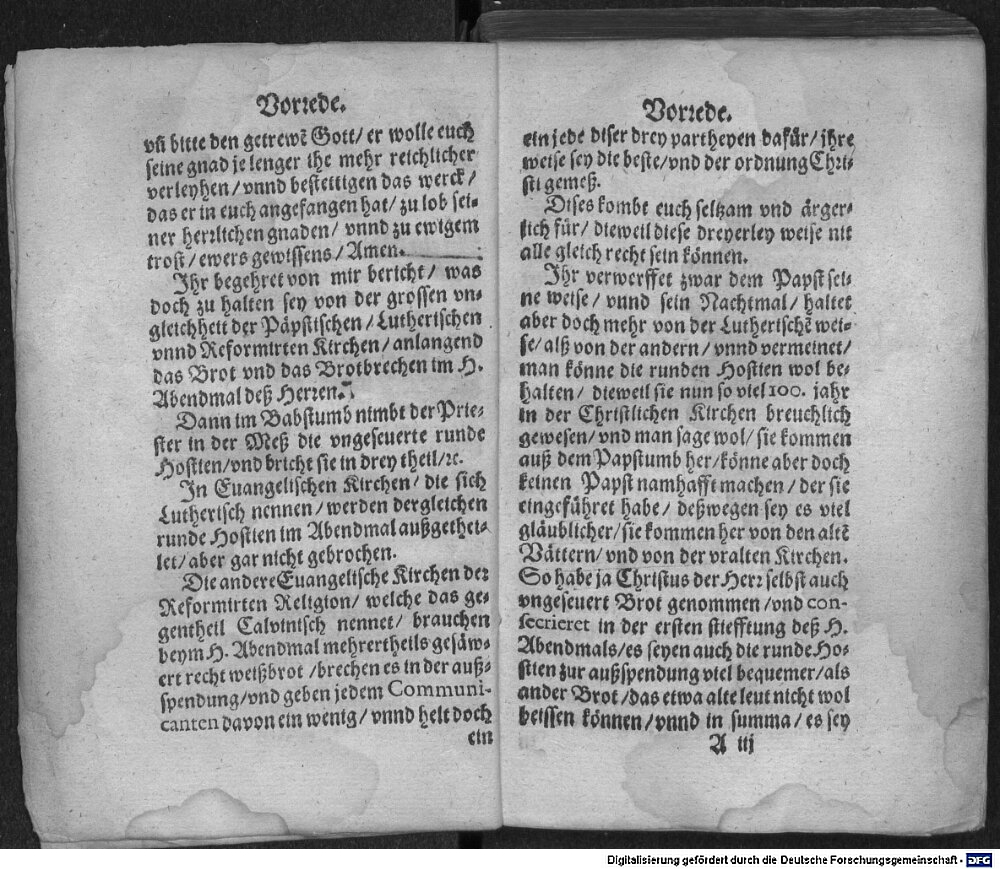 Vorrede.
vñ bitte den getrewẽ Gott/ er wolle euch
seine gnad je lenger ihe mehr reichlicher
verleyhen/ vnnd bestettigen das werck/
das er in euch angefangen hat/ zu lob sei-
ner herrlichen gnaden/ vnnd zu ewigem
trost/ ewers gewissens/ Amen.
Ihr begehret von mir bericht/ was
doch zu halten sey von der grossen vn-
gleichheit der Päpstischen/ Lutherischen
vnnd Reformirten Kirchen/ anlangend
das Brot vnd das Brotbrechen im H.
Abendmal deß Herren.
Dann im Babstumb nimbt der Prie-
ster in der Meß die vngeseuerte runde
Hostien/ vnd bricht sie in drey theil/ ꝛc.
In Euangelischen Kirchen/ die sich
Lutherisch nennen/ werden dergleichen
runde Hostien im Abendmal außgethei-
let/ aber gar nicht gebrochen.
Die andere Euangelische Kirchen der
Reformirten Religion/ welche das ge-
gentheil Calvinisch nennet/ brauchen
beym H. Abendmal mehrertheils gesäw-
ert recht weißbrot/ brechen es in der auß-
spendung/ vnd geben jedem Communi-
canten davon ein wenig/ vnnd helt doch
ein
Vorrede.
ein jede diser drey partheyen dafür/ ihre
weise sey die beste/ vnd der ordnung Chri-
sti gemeß.
Dises kombt euch seltzam vnd ärger-
lich für/ dieweil diese dreyerley weise nit
alle gleich recht sein können.
Ihr verwerffet zwar dem Papst sei-
ne weise/ vnnd sein Nachtmal/ haltet
aber doch mehr von der Lutherischẽ wei-
se/ alß von der andern/ vnnd vermeinet/
man könne die runden Hostien wol be-
halten/ dieweil sie nun so viel 100. jahr
in der Christlichen Kirchen breuchlich
gewesen/ vnd man sage wol/ sie kommen
auß dem Papstumb her/ könne aber doch
keinen Papst namhafft machen/ der sie
eingeführet habe/ deßwegen sey es viel
gläublicher/ sie kommen her von den altẽ
Vättern/ vnd von der vralten Kirchen.
So habe ja Christus der Herr selbst auch
vngeseuert Brot genommen/ vnd con-
secrieret in der ersten stiefftung deß H.
Abendmals/ es seyen auch die runde Ho-
stien zur außspendung viel bequemer/ als
ander Brot/ das etwa alte leut nicht wol
beissen können/ vnnd in summa/ es sey
A iij
Digitalisierung gefördert durch die Deutsche Forschungsgemeinschaft - DFG